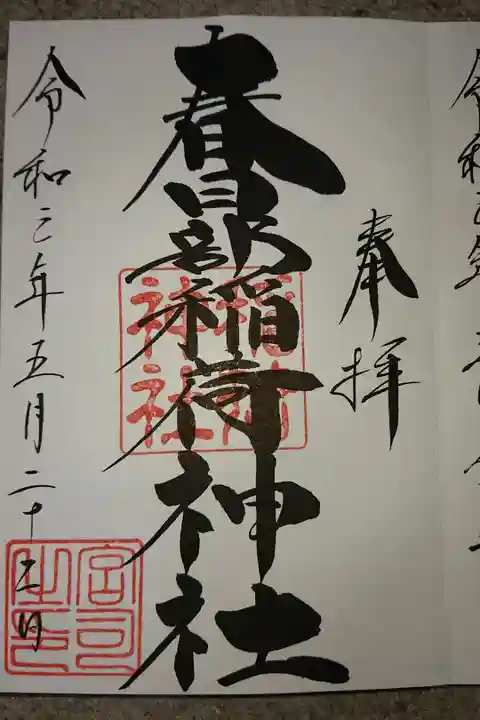 奉拝
春日部稲荷神社
令和三年五月二十三日
稲荷
神社
宮司
之印
令和三年